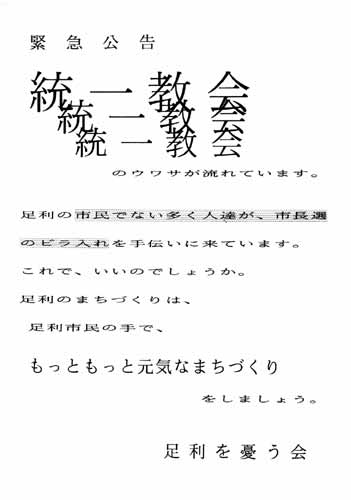 緊急公告
統一教会
統一教会
統一教会
のウワサが流れています。
足利の市民でない多く人達が、市長選
のビラ入れを手伝いに来ています。
これで、いいのでしょうか。
足利のまちづくりは、
足利市民の手で、
もっともっと元気なまちづくり
をしましょう。
足利を憂う会